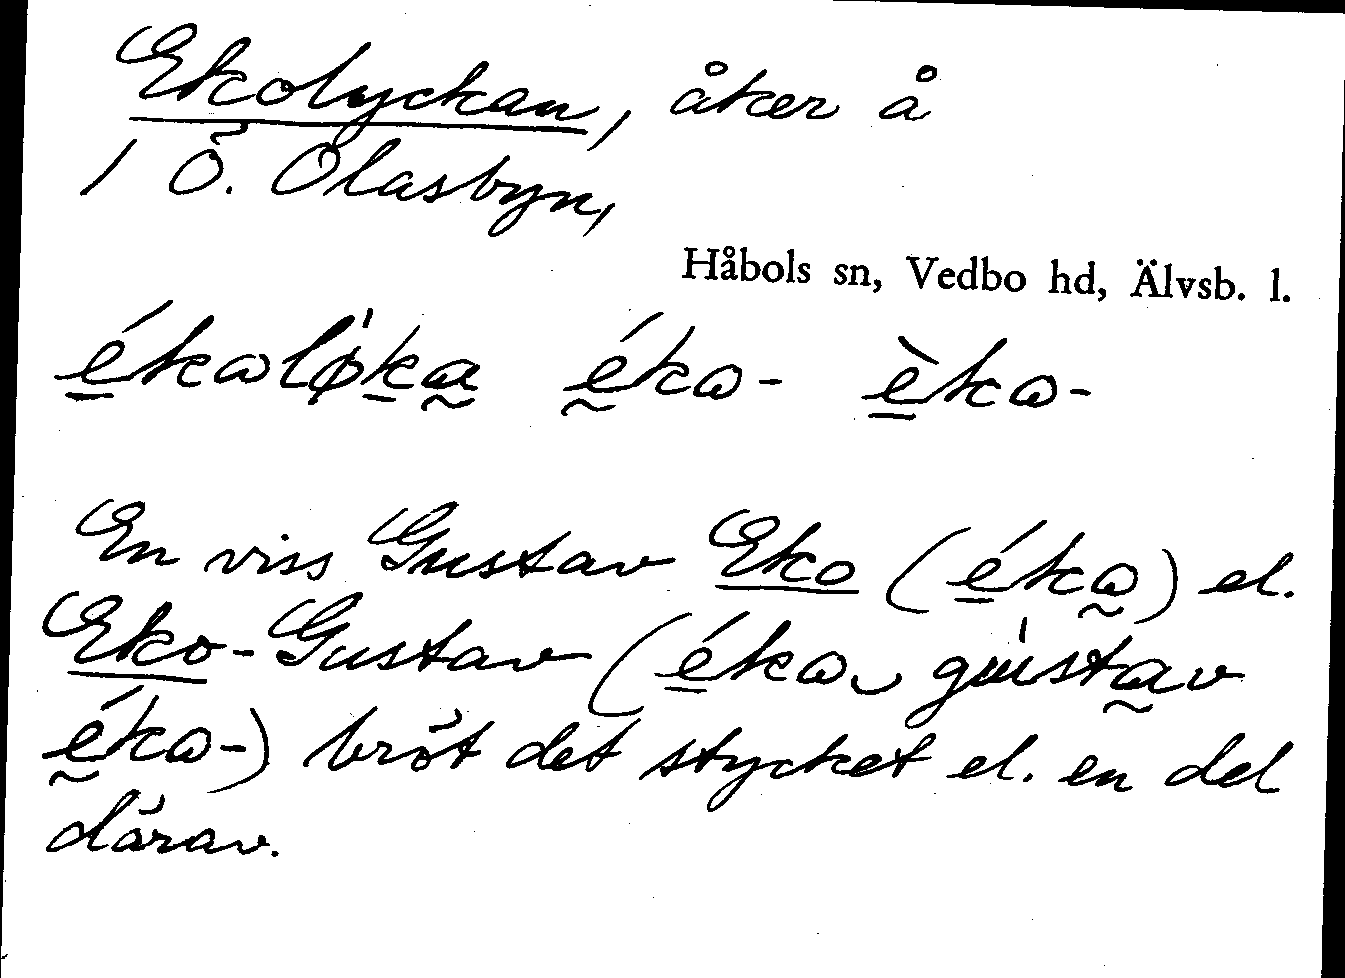 Ekolyckan, åker å
1 Ö. Olasbyn,
Håbols sn, Vedbo hd, Älvsb. l.
ékωlø̀ka ékω- èkω-
En viss Gustav Eko (ékω) el.
Eko-Gustav (ékω gustav
ékω-) bröt det stycket el. en del
därav.